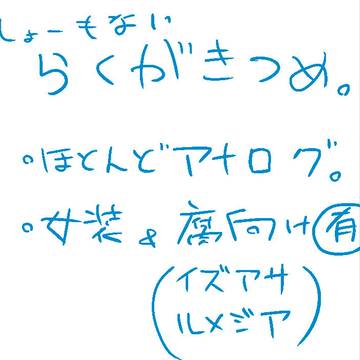 しょーもない
らくがきつめ。
・ほとんどアナログ。
・女装&腐向け有
(イズアサ
ルメジア)